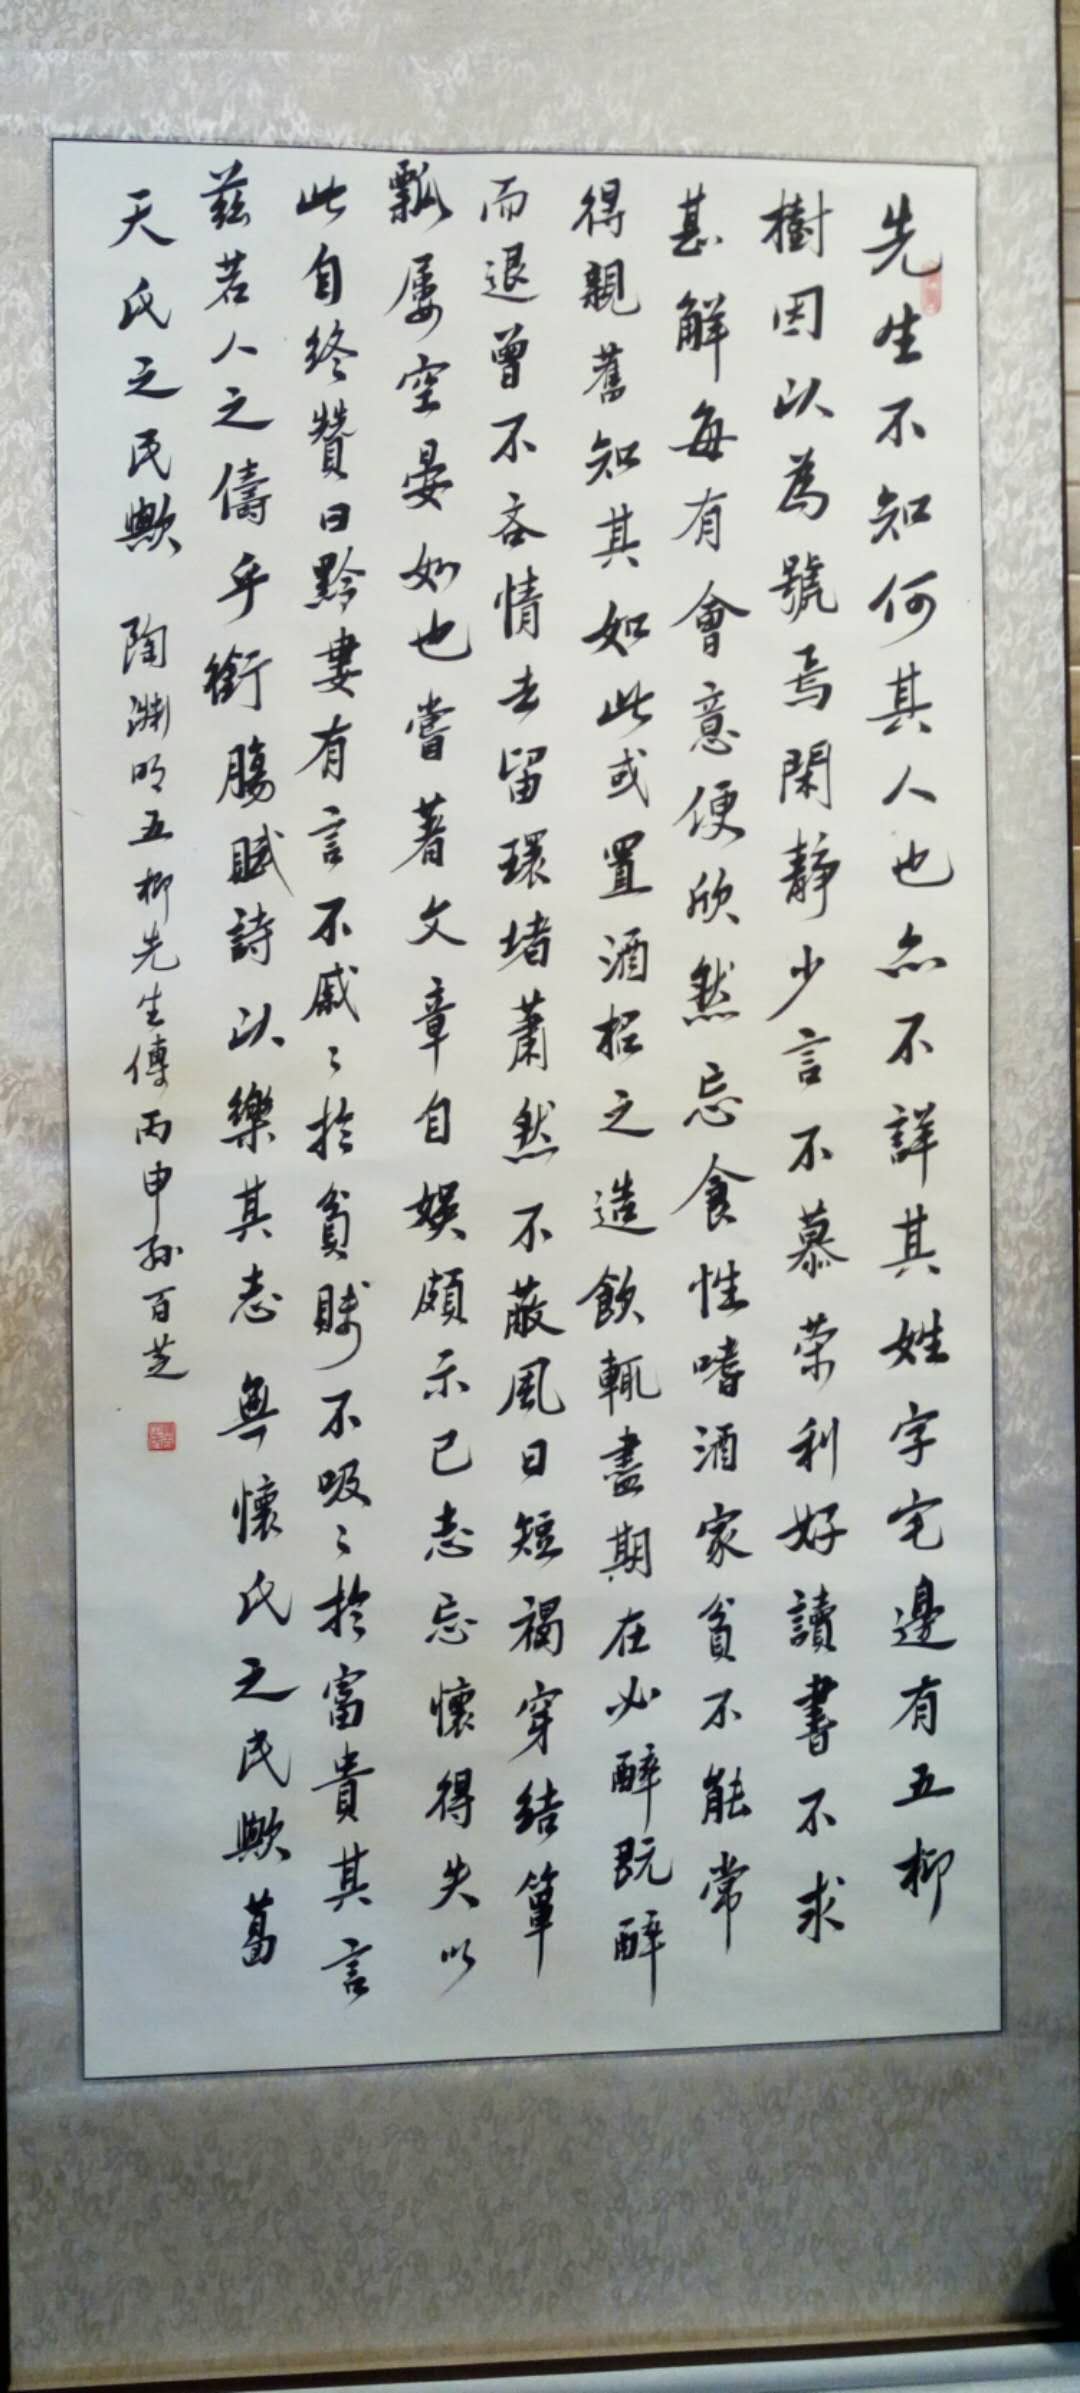 先生不知何其人也亦不詳其姓字宅邊有五柳
樹因以為號焉閑靜少言不慕荣利好讀書不求
甚解每有會意便欣然忘食性嗜酒家貧不能常
得親舊知其如此或置酒招之造飲輒盡期在必醉既醉
而退曾不吝情去留環堵蕭然不蔽風日短褐穿結簞
瓢屢空晏如也嘗著文章自娛頗示己志忘懷得失以
此自终贊曰黔婁有言不戚〻於貧賤不吸〻於富貴其言
兹若人之儔乎銜觴賦詩以樂其志無懷氏之民歟葛
天氏之民歟 陶渊明五柳先生傳丙申孙百芝